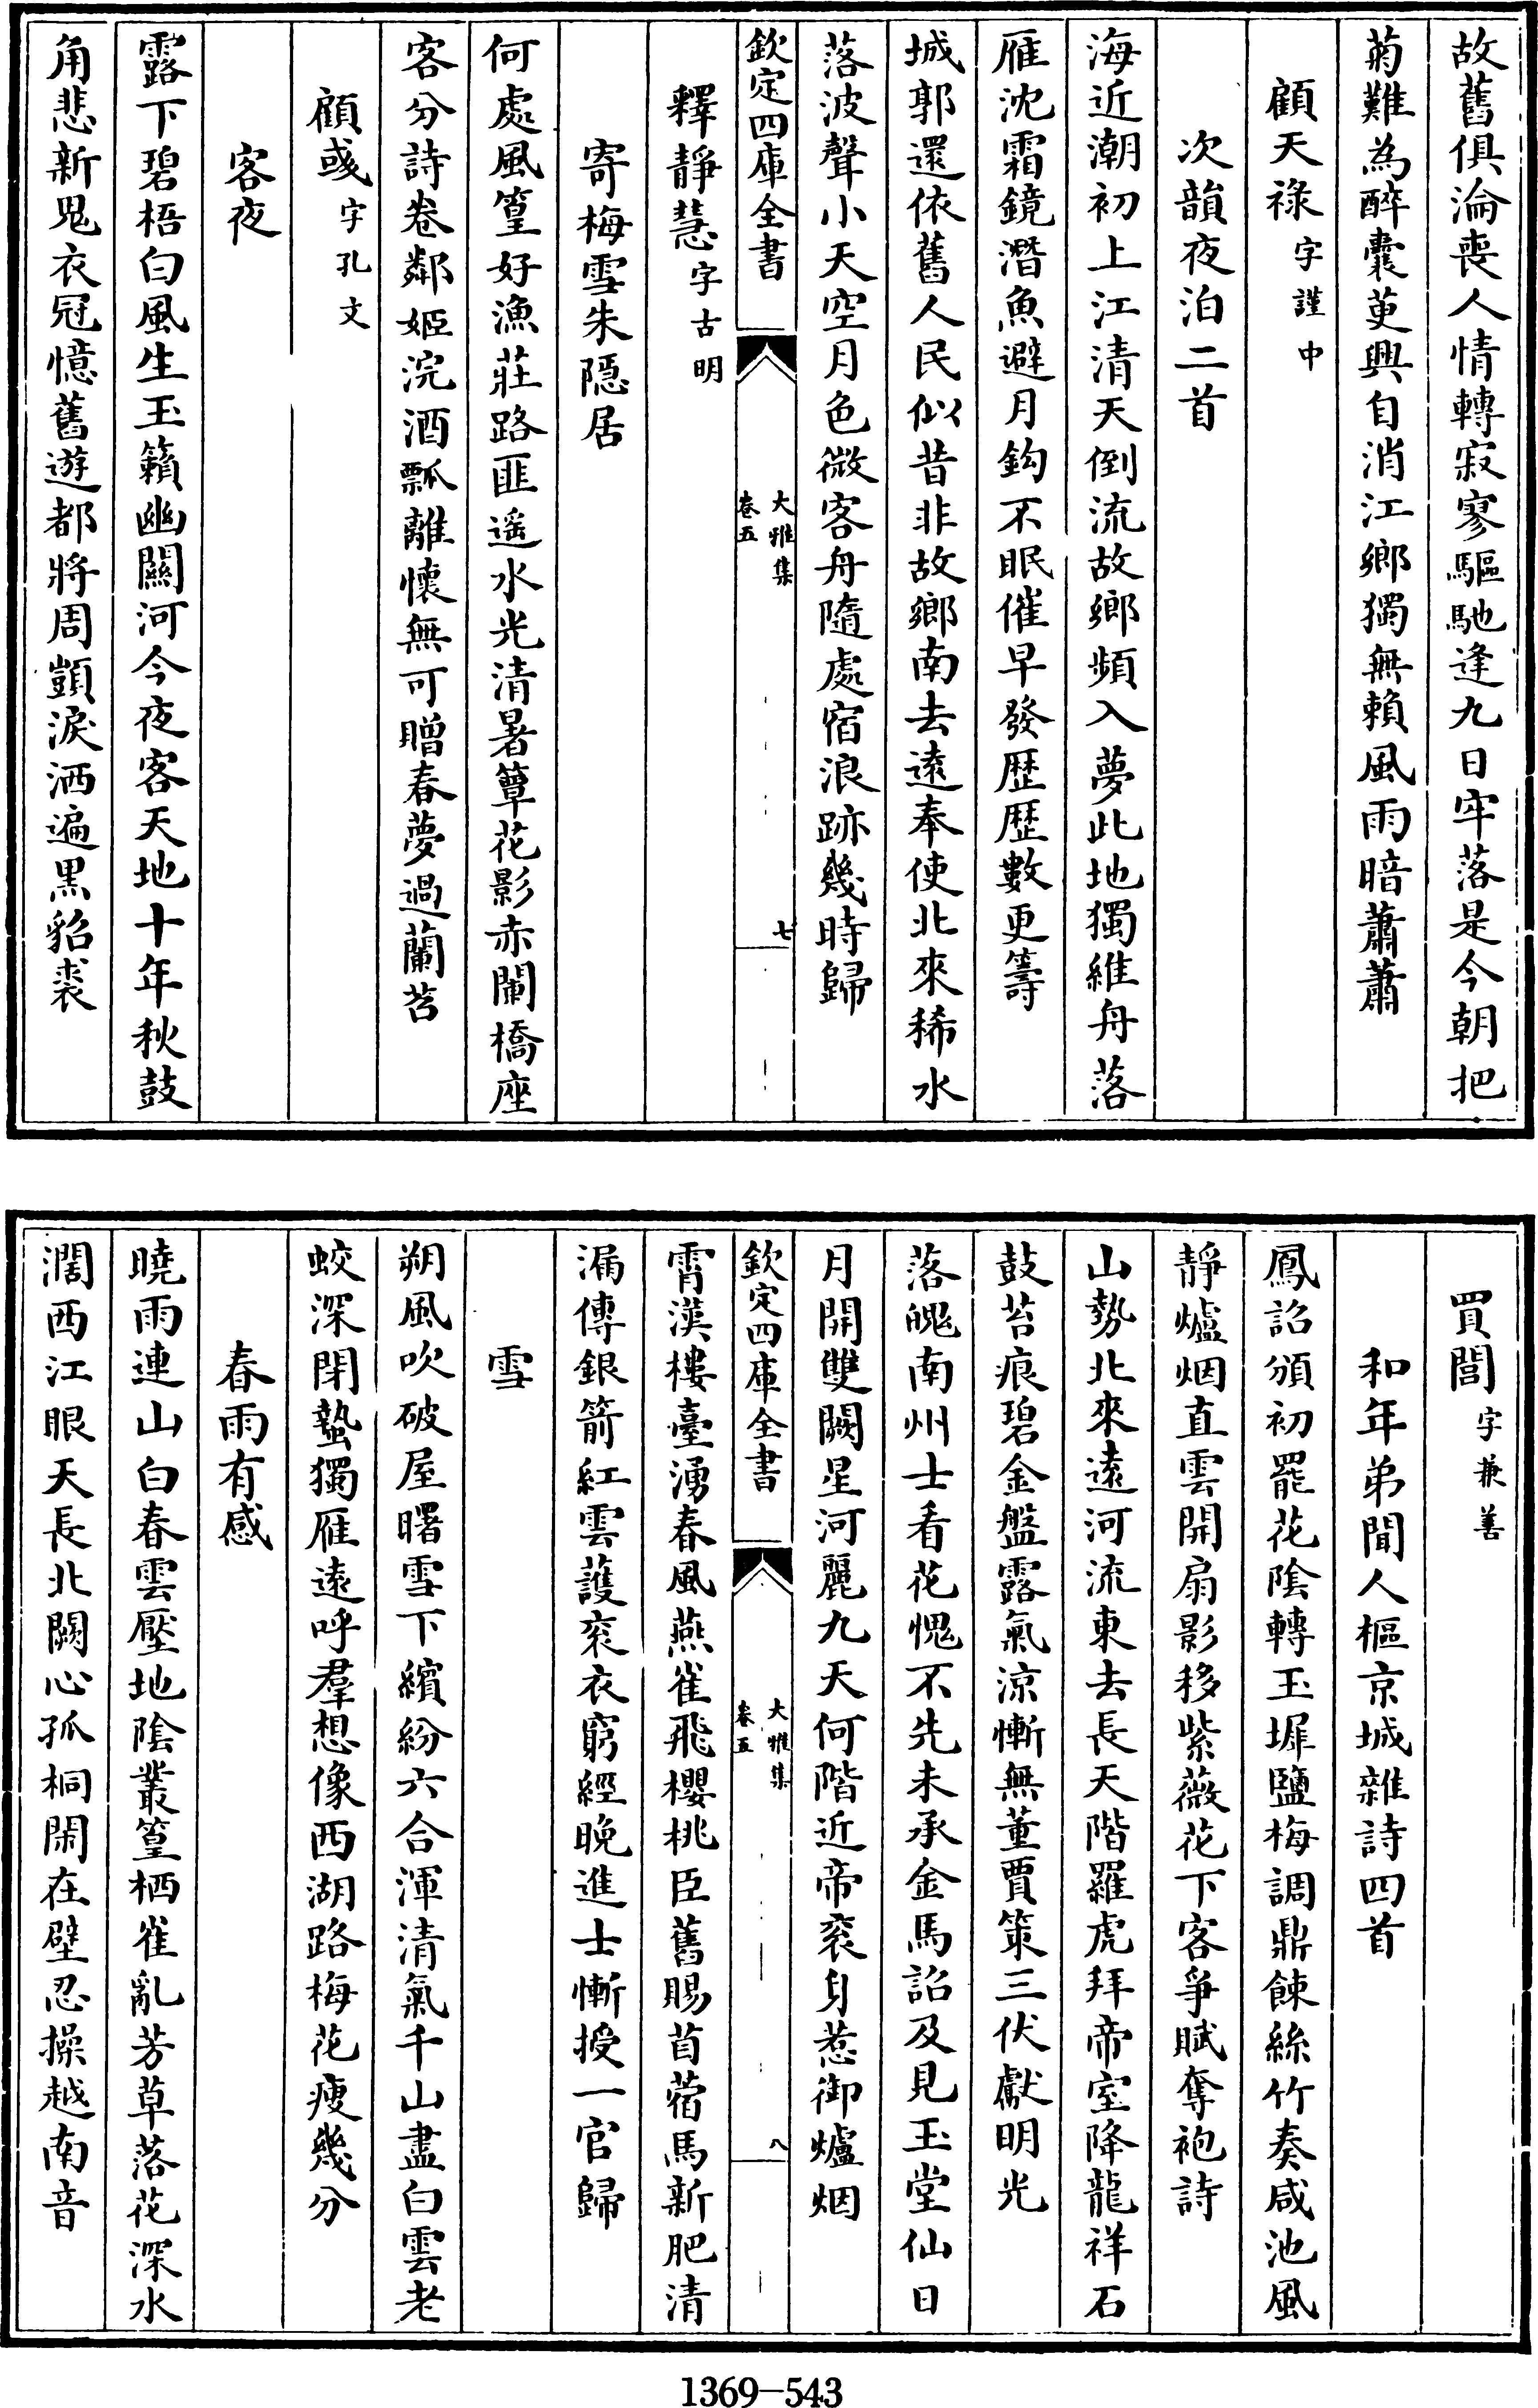 故舊俱淪喪人情轉寂寥驅馳逢九日牢落是今朝把
菊難為醉囊萸興自消江鄉獨無賴風雨暗蕭蕭
顧天祿字謹中
次韻夜泊二首
海近潮初上江清天倒流故鄉頻入夢此地獨維舟落
雁沈霜鏡潛魚避月鈎不眠催早發歷歷數更籌
城郭還依舊人民似昔非故鄉南去遠奉使北來稀水
落波聲小天空月色微客舟隨處宿浪跡幾時歸
欽定四庫全書
大雅集
卷五
七
釋靜慧字古明
寄梅雪朱隱居
何處風篁好漁莊路匪遥水光清暑簟花影赤闌橋座
客分詩卷鄰姬浣酒瓢離懷無可贈春夢過蘭苕
顧彧字孔文
客夜
露下碧梧白風生玉籟幽關河今夜客天地十年秋鼓
角悲新鬼衣冠憶舊遊都將周顗淚洒遍黒貂裘
買閭字兼善
和年弟聞人樞京城雜詩四首
鳳詔頒初罷花陰轉玉墀鹽梅調鼎餗絲竹奏咸池風
靜爐烟直雲開扇影移紫薇花下客爭賦奪袍詩
山勢北來遠河流東去長天階羅虎拜帝室降龍祥石
鼓苔痕碧金盤露氣涼慚無董賈策三伏獻明光
落魄南州士看花愧不先未承金馬詔及見玉堂仙日
月開雙闕星河麗九天何階近帝衮身惹御爐烟
欽定四庫全書
大雅集
卷五
八
霄漢樓臺湧春風燕雀飛櫻桃臣舊賜苜蓿馬新肥清
漏傳銀箭紅雲護衮衣窮經晚進士慚授一官歸
雪
朔風吹破屋曙雪下繽紛六合渾清氣千山盡白雲老
蛟深閉蟄獨雁遠呼羣想像西湖路梅花瘦幾分
春雨有感
曉雨連山白春雲壓地陰叢篁栖雀亂芳草落花深水
濶西江眼天長北闕心孤桐閑在壁忍操越南音
1369-543